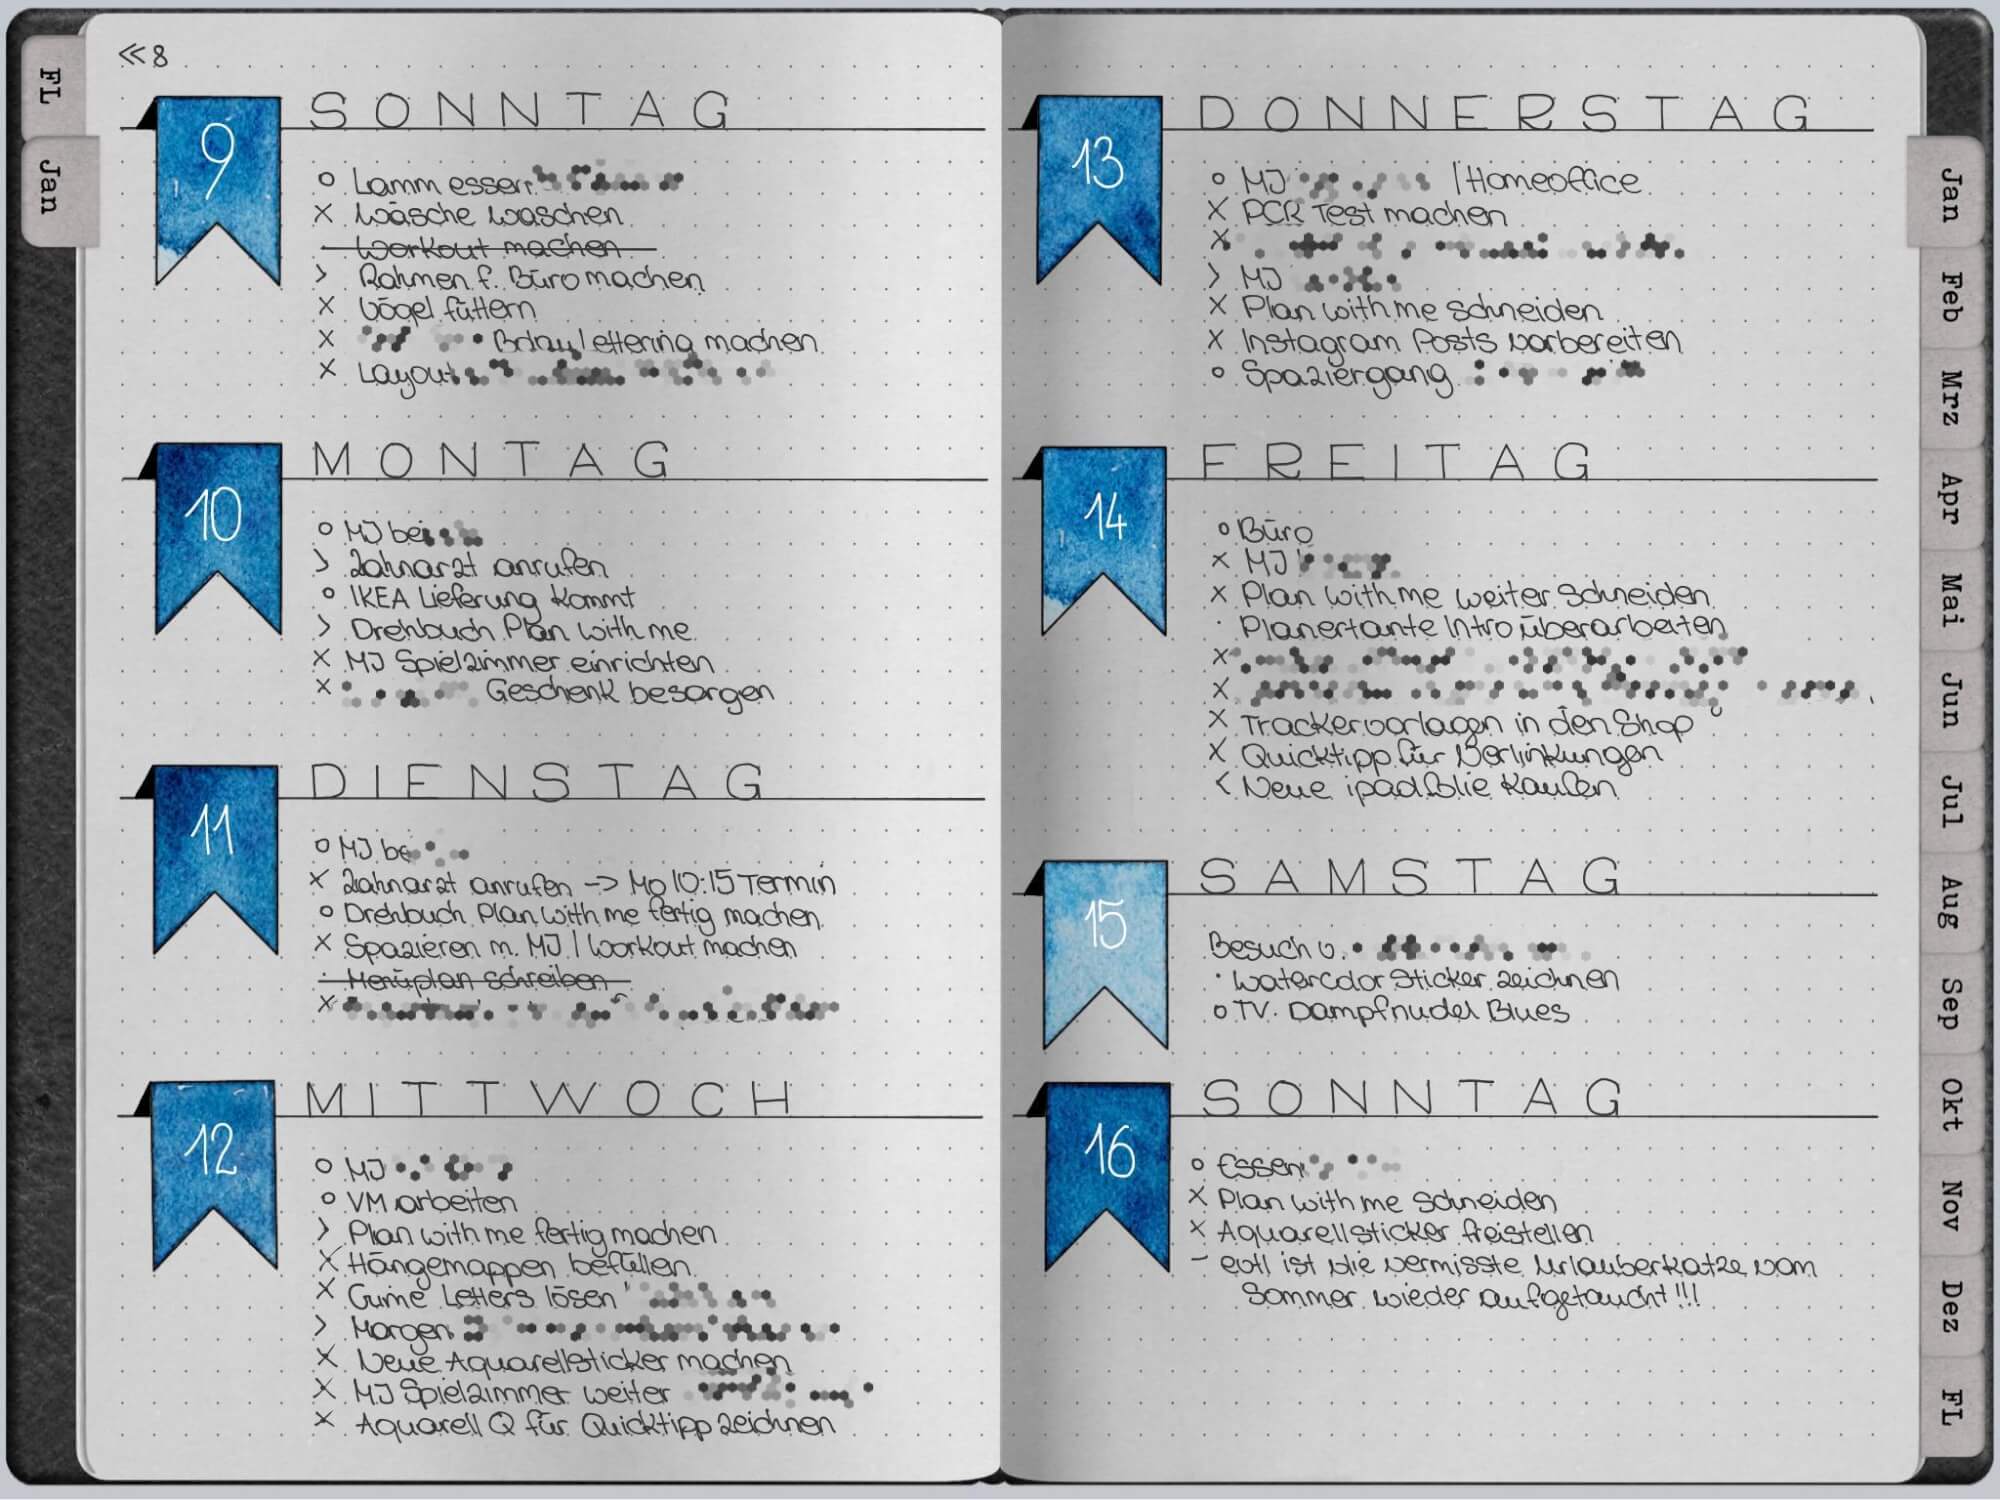 FL
Jan
<<8
9 SONNTAG
o Lamm essen
x Wäsche waschen
· Workout machen
> Rahmen f. Büro machen
x Vögel füttern
x Bday Lettering machen
x Layout
10 MONTAG
o MJ bei
> Zahnarzt anrufen
o IKEA Lieferung kommt
> Drehbuch Plan with me
x MJ Spielzimmer einrichten
x Geschenk besorgen
11 DIENSTAG
o MJ be
x Zahnarzt anrufen -> Mo 10:15 Termin
o Drehbuch Plan with me fertig machen
x Spazieren m. MJ / Workout machen
· Menüplan schreiben
x
12 MITTWOCH
o MJ
o VM arbeiten
> Plan with me fertig machen
x Hängemappen befüllen
x Crime Letters lösen
> Morgen
x Neue Aquarellsticker machen
x MJ Spielzimmer weiter
x Aquarell Q für Quicktipp zeichnen
13 DONNERSTAG
o MJ | Homeoffice
x PCR Test machen
x
> MJ
x Plan with me schneiden
x Instagram Posts vorbereiten
o Spaziergang
14 FREITAG
o Büro
x MJ
x Plan with me weiter schneiden
· Planertante Intro überarbeiten
x
x
x Trackervorlagen in den Shop
x Quicktipp für Verlinkungen
< Neue ipadfolie kaufen
15 SAMSTAG
Besuch v.
· Watercolor Sticker zeichnen
o TV. Dampfnudel Blues
16 SONNTAG
o Essen
x Plan with me schneiden
x Aquarellsticker freistellen
- evtl ist die vermisste Urlauberkatze vom
Sommer wieder aufgetaucht!!!
Jan
Feb
Mrz
Apr
Mai
Jun
Jul
Aug
Sep
Okt
Nov
Dez
FL